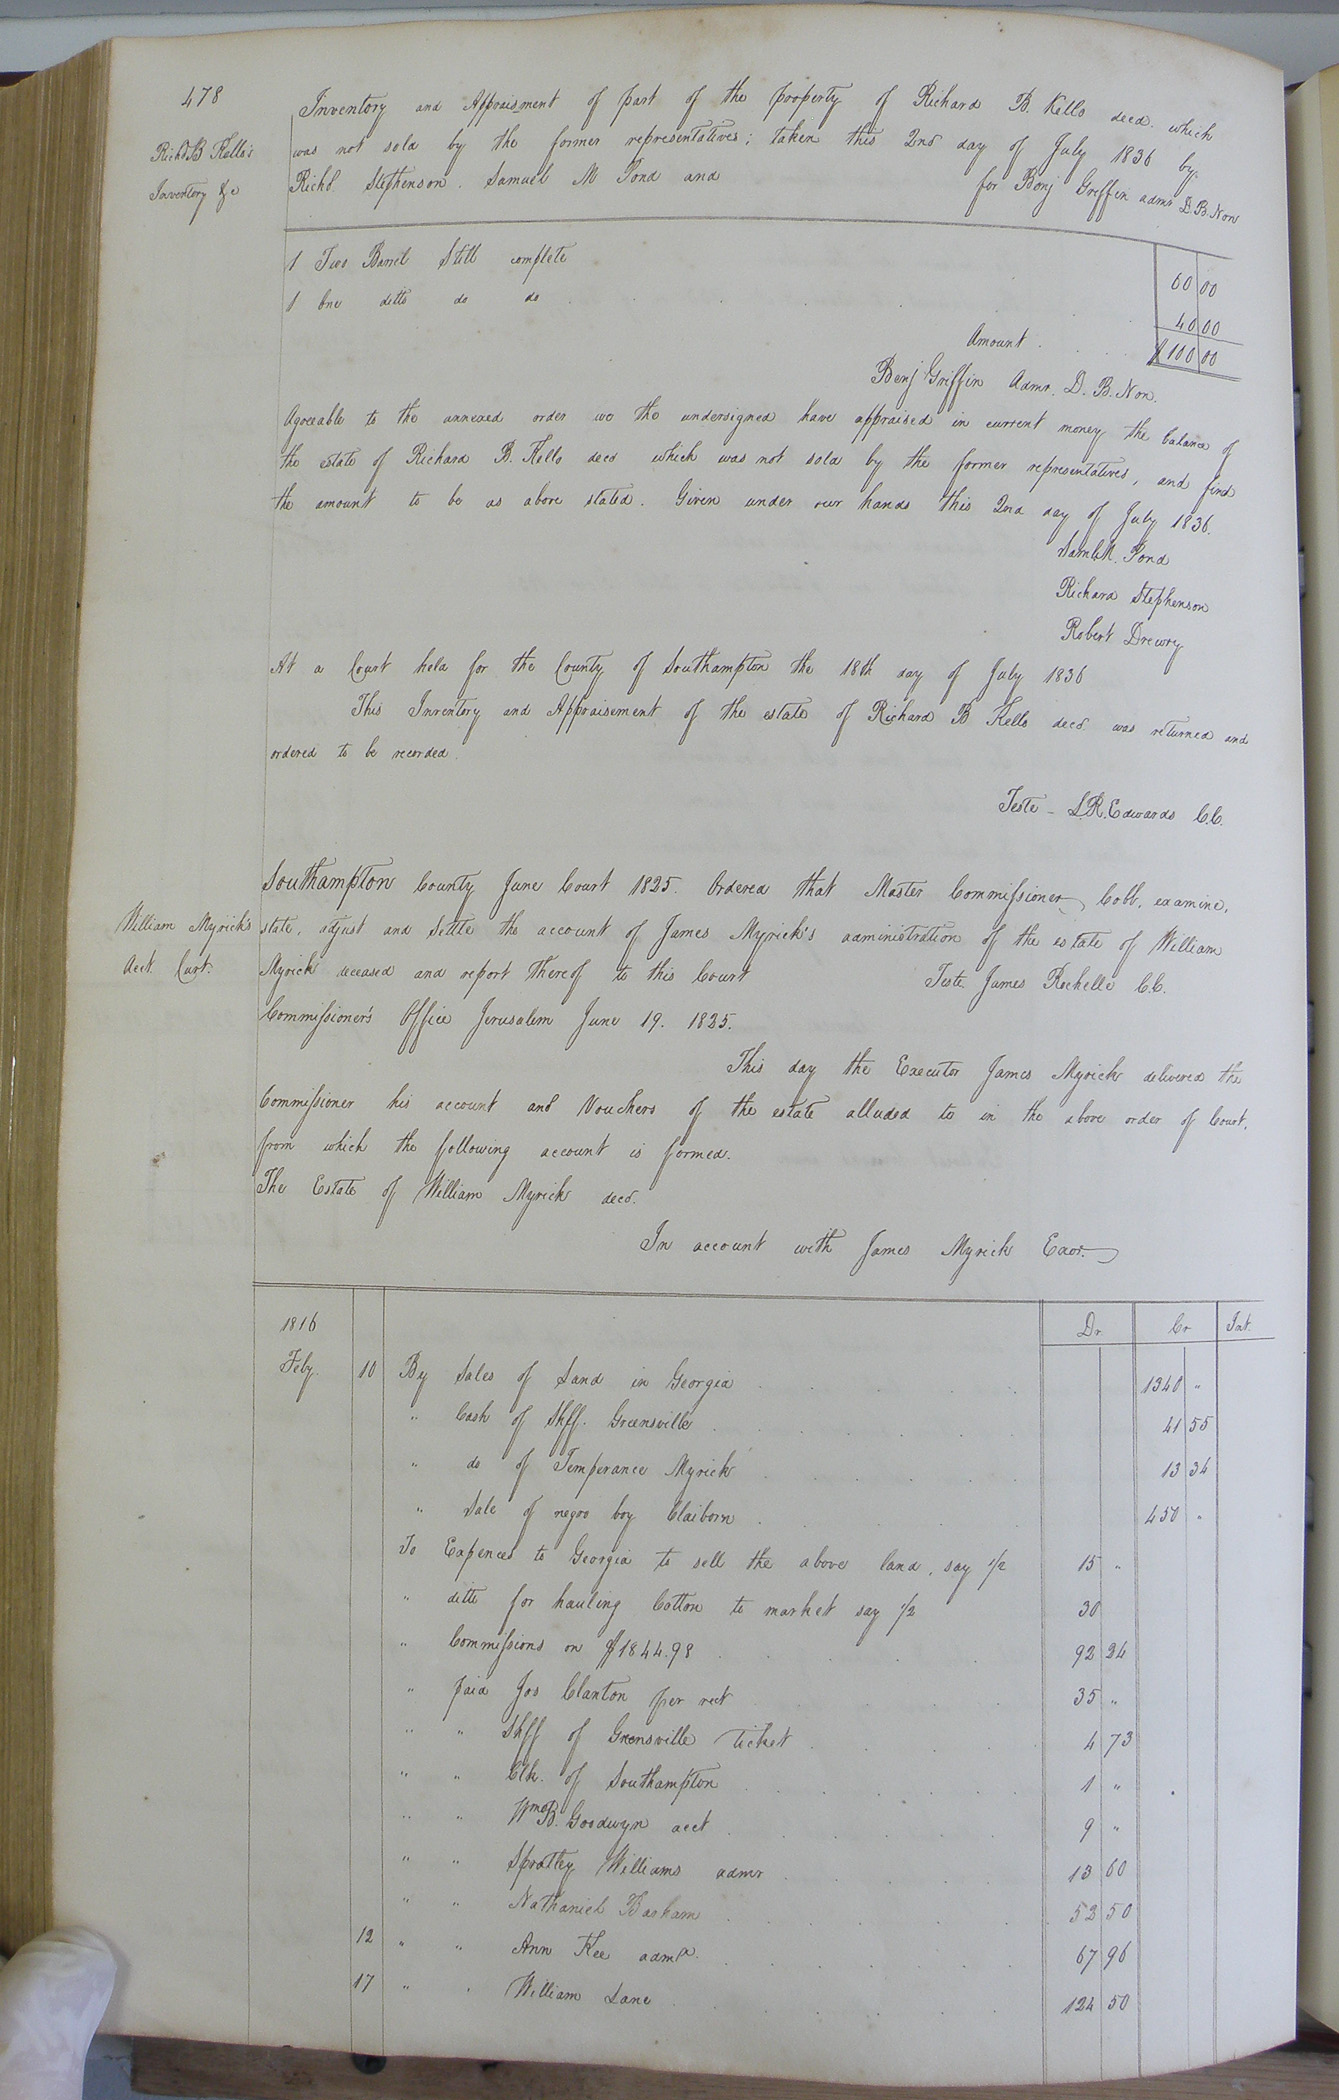 478
Inventory and Appraisment of part of the property of Richard B. Kello decd. which
Richd B Kello's
was not sold by the former representatives; taken this 2nd day of July 1836 by
Inventory &c
Richd. Stephenson. Samuel M Pond and for Benj Griffin admr D.B.Non
1 Two Barrel Still complete 60 00
1 One ditto do do 40 00
Amount $100 00
Benj Griffin Admr. D. B. Non.
Agreeable to the annexed order we the undersigned have appraised in current money the balance of
the estate of Richard B. Kello decd which was not sold by the former representatives, and find
the amount to be as above stated. Given under our hands this 2nd day of July 1836.
Saml M. Pond
Richard Stephenson
Robert Drewry
At a Court held for the County of Southampton the 18th day of July 1836
This Inventory and Appraisement of the estate of Richard B Kello decd was returned and
ordered to be recorded.
Teste - L.R. Edwards C.C.
Southampton County June Court 1825. Ordered that Master Commissioner Cobb, examine,
William Myrick's
state, adjust and settle the account of James Myrick's administration of the estate of William
Acct. Curt.
Myrick deceased and report thereof to this Court Teste James Rochelle C.C.
Commissioner's Office Jerusalem June 19. 1825.
This day the Executor James Myrick delivered the
Commissioner his account and Vouchers of the estate alluded to in the above order of Court,
from which the following account is formed.
The Estate of William Myrick decd.
In account with James Myrick Exor.
1816 Dr Cr Int.
Feby. 10 By Sales of Land in Georgia 1340 "
" Cash of Shff. Greensville 41 55
" do of Temperance Myrick 13 34
" Sale of negro boy Claiborn 450 "
To Expences to Georgia to sell the above land, say 1/2 15 "
" ditto for hauling Cotton to market say 1/2 30
" Commissions on $1844.98 92 24
" paid Jos Clanton per rect 35 "
" " Shff of Grensville Ticket 4 73
" " Clk. of Southampton 1 "
" " Wm B. Goodwyn acct 9 "
" " Spratley Williams admr 13 60
" " Nathaniel Basham 53 50
12 " " Ann Kee admx. 67 96
17 " " William Lane 124 50